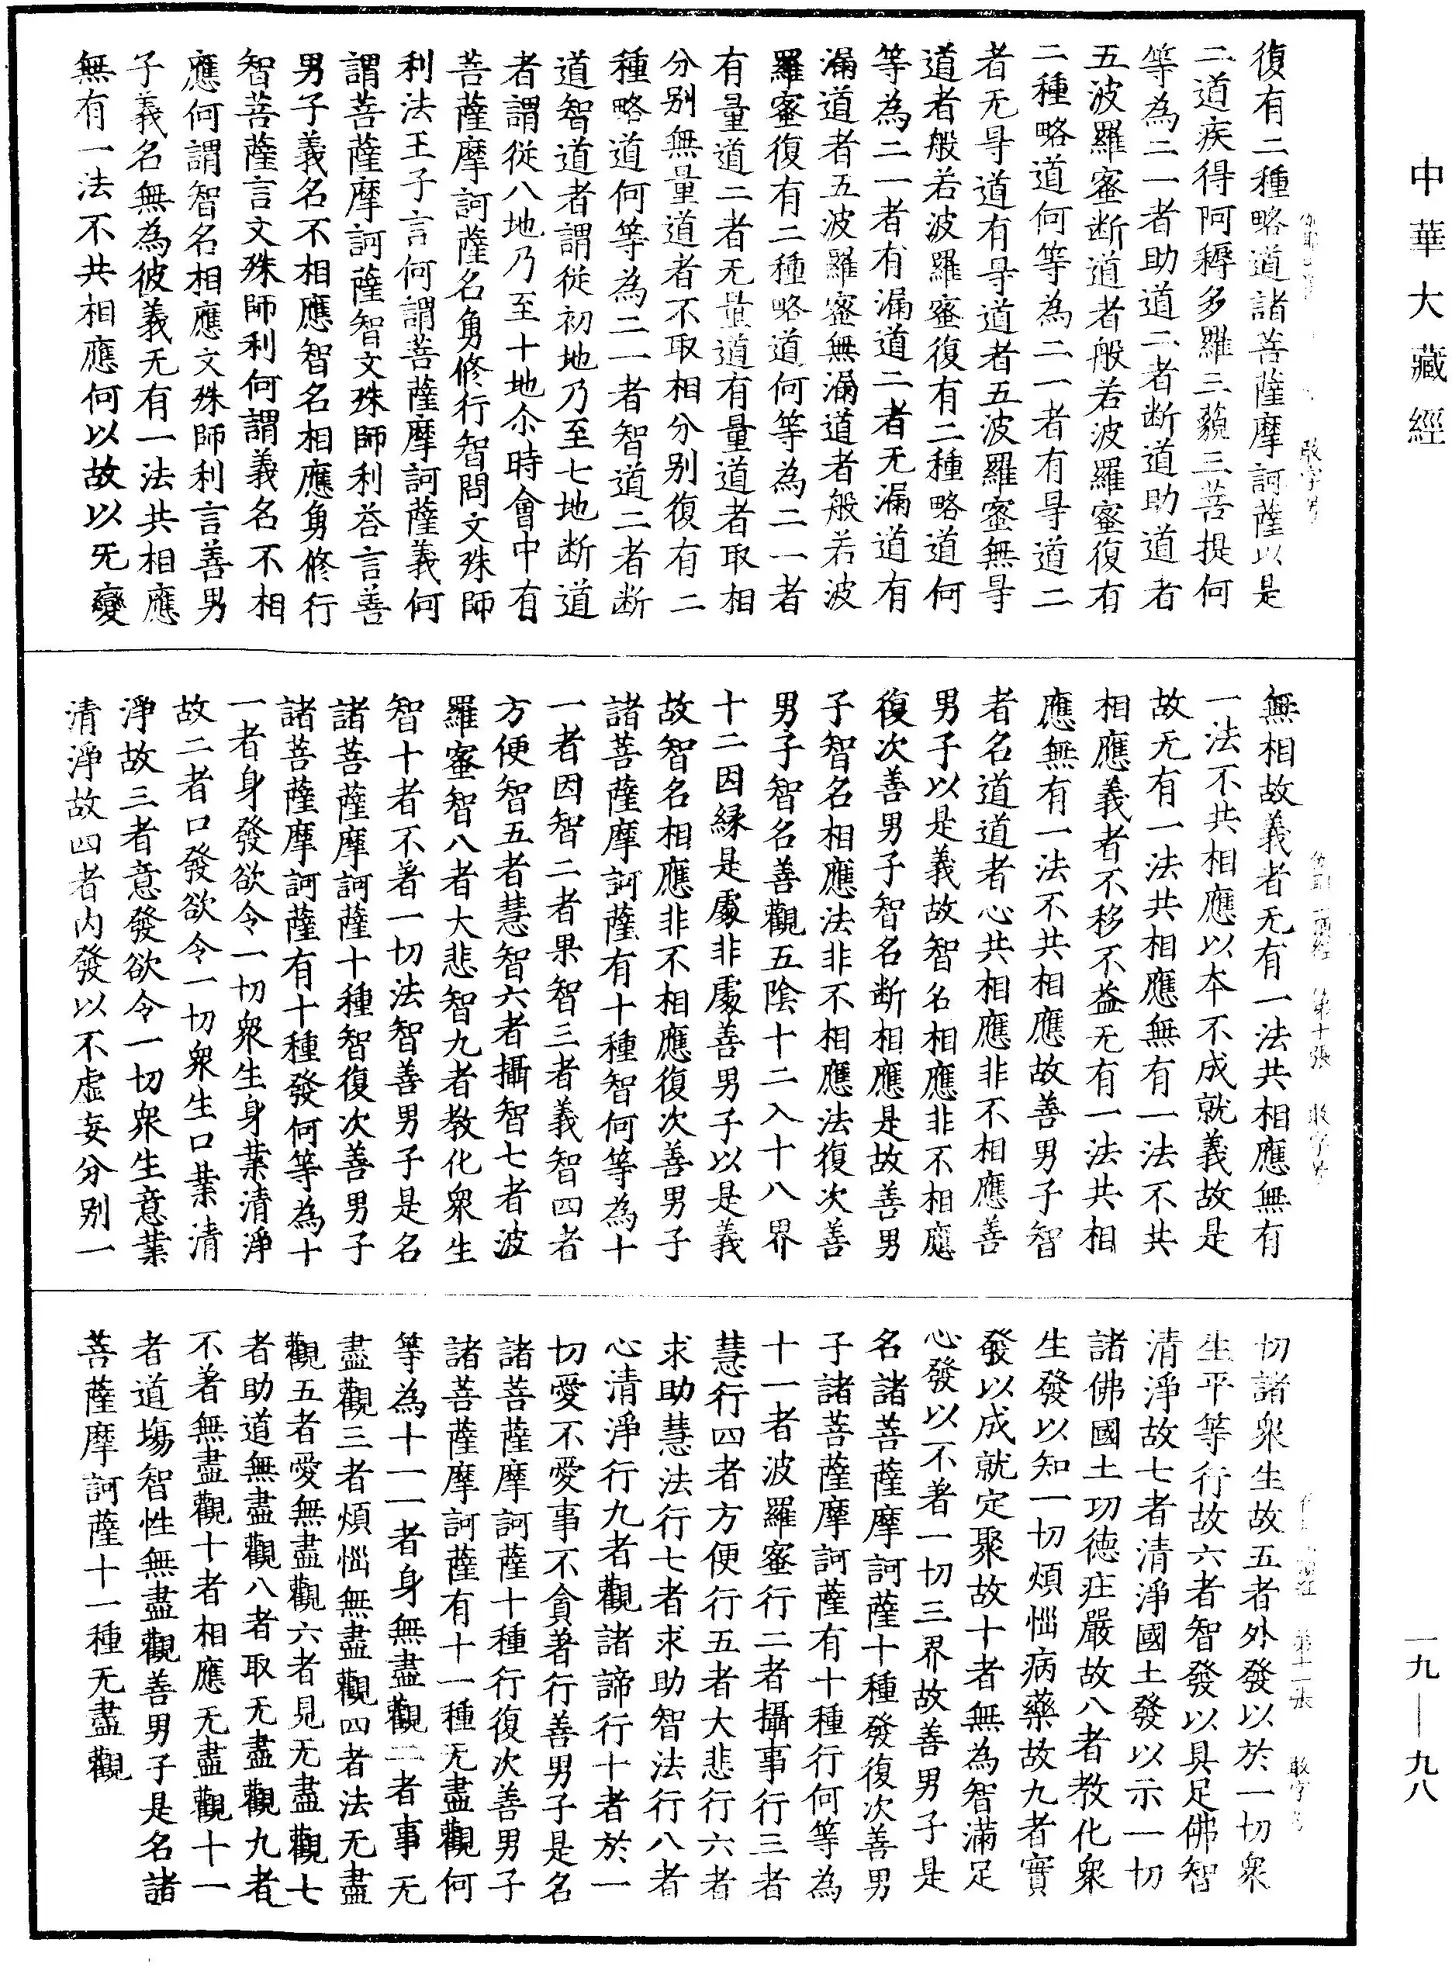 中華大藏經
復有二種略道諸菩薩摩訶薩以是
二道疾得阿耨多羅三藐三菩提何
等為二一者助道二者断道助道者
五波羅蜜断道者般若波羅蜜復有
二種略道何等為二一者有㝵道二
者无㝵道有㝵道者五波羅蜜無㝵
道者般若波羅蜜復有二種略道何
等為二一者有漏道二者无漏道有
漏道者五波羅蜜無漏道者般若波
羅蜜復有二種略道何等為二一者
有量道二者无量道有量道者取相
分别無量道者不取相分别復有二
種略道何等為二一者智道二者断
道智道者謂從初地乃至七地断道
者謂從八地乃至十地尒時會中有
菩薩摩訶薩名勇修行智問文殊師
利法王子言何謂菩薩摩訶薩義何
謂菩薩摩訶薩智文殊師利荅言善
男子義名不相應智名相應勇修行
智菩薩言文殊師利何謂義名不相
應何謂智名相應文殊師利言善男
子義名無為彼義无有一法共相應
無有一法不共相應何以故以无變
無相故義者无有一法共相應無有
一法不共相應以本不成就義故是
故无有一法共相應無有一法不共
相應義者不移不益无有一法共相
應無有一法不共相應故善男子智
者名道道者心共相應非不相應善
男子以是義故智名相應非不相應
復次善男子智名断相應是故善男
子智名相應法非不相應法復次善
男子智名善觀五陰十二入十八界
十二因緣是處非處善男子以是義
故智名相應非不相應復次善男子
諸菩薩摩訶薩有十種智何等為十
一者因智二者果智三者義智四者
方便智五者慧智六者攝智七者波
羅蜜智八者大悲智九者教化衆生
智十者不著一切法智善男子是名
諸菩薩摩訶薩十種智復次善男子
諸菩薩摩訶薩有十種發何等為十
一者身發欲令一切衆生身業清淨
故二者口發欲令一切衆生口業清
淨故三者意發欲令一切衆生意業
清淨故四者内發以不虚妄分别一
切諸衆生故五者外發以於一切衆
生平等行故六者智發以具足佛智
清淨故七者清淨國土發以示一切
諸佛國土功徳莊嚴故八者教化衆
生發以知一切煩惱病藥故九者實
發以成就定聚故十者無為智滿足
心發以不著一切三界故善男子是
名諸菩薩摩訶薩十種發復次善男
子諸菩薩摩訶薩有十種行何等為
十一者波羅蜜行二者攝事行三者
慧行四者方便行五者大悲行六者
求助慧法行七者求助智法行八者
心清淨行九者觀諸諦行十者於一
切愛不愛事不貪著行善男子是名
諸菩薩摩訶薩十種行復次善男子
諸菩薩摩訶薩有十一種无盡觀何
等為十一一者身無盡觀二者事无
盡觀三者煩惱無盡觀四者法无盡
觀五者愛無盡觀六者見无盡觀七
者助道無盡觀八者取无盡觀九者
不著無盡觀十者相應无盡觀十一
者道塲智性無盡觀善男子是名諸
菩薩摩訶薩十一種无盡觀
第十張
一九—九八